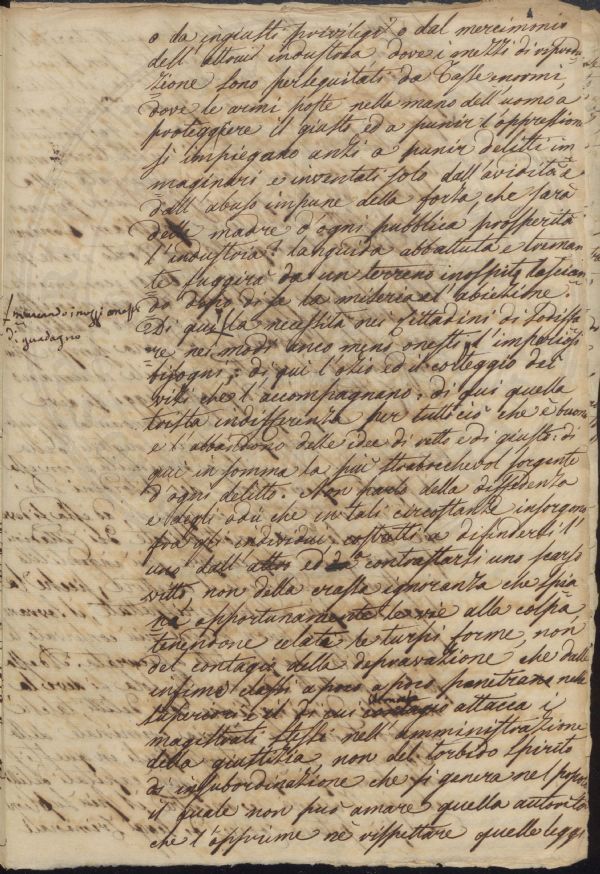 o da ingiusti privilegi o dal mercimonio
dell'altrui industria, dove i mezzi di riprodu-
zione sono perseguitati da Tasse enormi,
dove le armi poste nella mano dell'uomo a
proteggere il giusto, ed a punir l'oppressione
si impiegano anzi a punir delitti im
maginari e inventati solo dall'avidità e
dall'abuso impune della forza che sarà
della madre d'ogni pubblica prosperità
l'industria? languida abbattuta e treman
te fuggirà da un terreno inospite lascian
do dopo di se la miseria e l'abiezione.
Di qui la necessità nei Cittadini di sodisfa
re nei modi anco meno onesti l'imperiosi
bisogni; di qui l'ozio ed il corteggio dei
vizi che l'accompagnano: di qui quella
trista indifferenza per tutto ciò che è buono
e l'abbandono delle idee di retto e di giusto: di
qui in somma la più strabocchevol sorgente
d'ogni delitto. Non parlo della diffidenza
e degli odii che in tali circostanze insorgono
fra gli individui costretti a difendersi l'
uno dall'altro ed a contrastarsi uno scarso
vitto, non della crassa ignoranza che spia
na opportunamente le vie alla colpa
tenendone celate le turpi forme, non
del contagio della depravazione che dalle
infime classi a poco a poco penetrano nelle
superiori e di cui attacca i
magistrati stessi nell'amministrazione
della giustizia, non del torbido spirito
di insubordinazione che si genera nel popolo
il quale non può amare quella autorità
che l'opprime nè rispettare quelle leggi
mancando i mezzi onesti
di guadagno